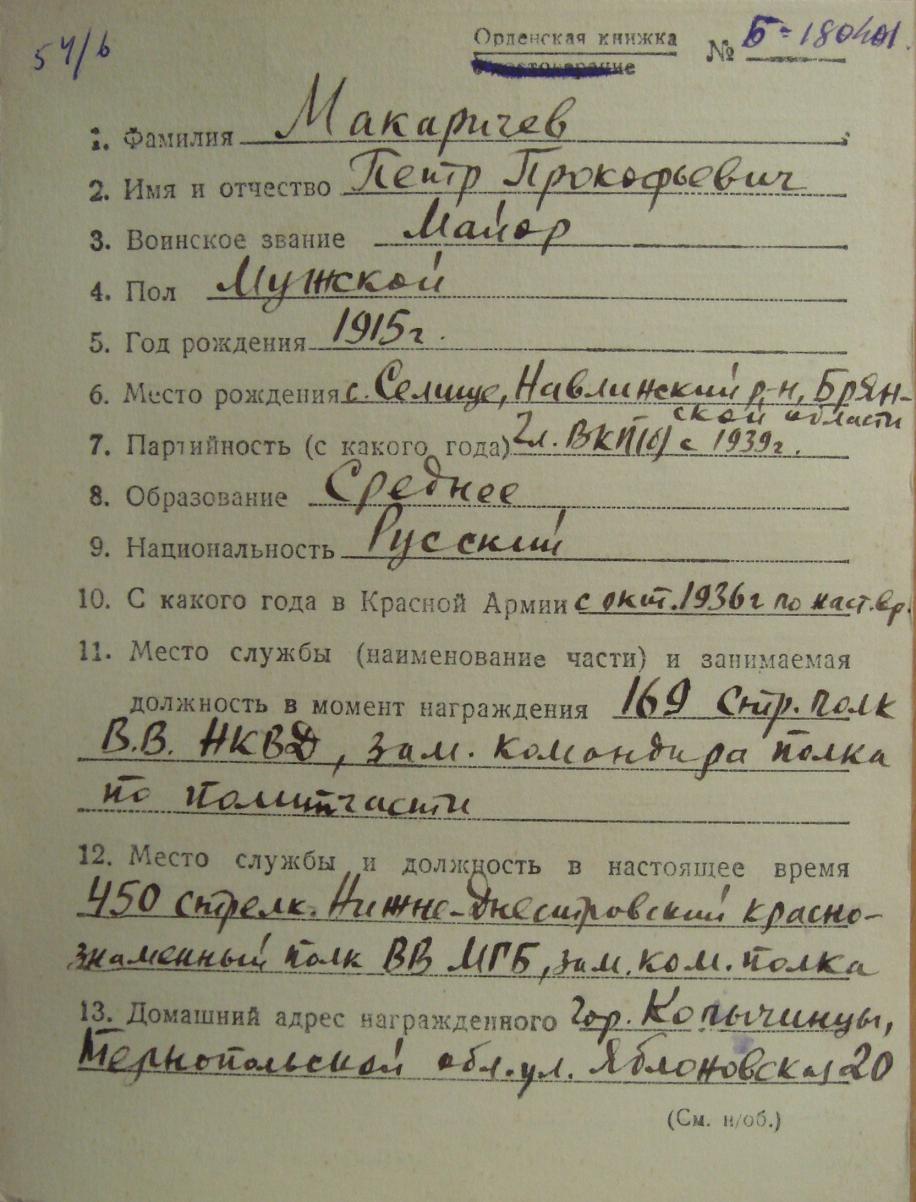 54/6
Орденская книжка № Б-180401
1. Фамилия Макаричев
2. Имя и отчество Петр Прокофьевич
3. Воинское звание Майор
4. Пол Мужской
5. Год рождения 1915 г.
6. Место рождения с. Селище, Навлинский р-н, Брян-
ской области
7. Партийность (с какого года) Чл. ВКП(б) с 1939 г.
8. Образование Среднее
9. Национальность Русский
10. С какого года в Красной Армии с окт. 1936 г по наст. вр.
11. Место службы (наименование части) и занимаемая
должность в момент награждения 169 Стр. полк
В.В. НКВД, зам. командира полка
по политчасти
12. Место службы и должность в настоящее время
450 стрелк. Нижне-Днестровский красно-
знаменный полк ВВ МГБ, зам. ком. полка
13. Домашний адрес награжденного гор. Копычинцы,
Тернопольской обл. ул. Яблоновская 20
(См. н/об.)